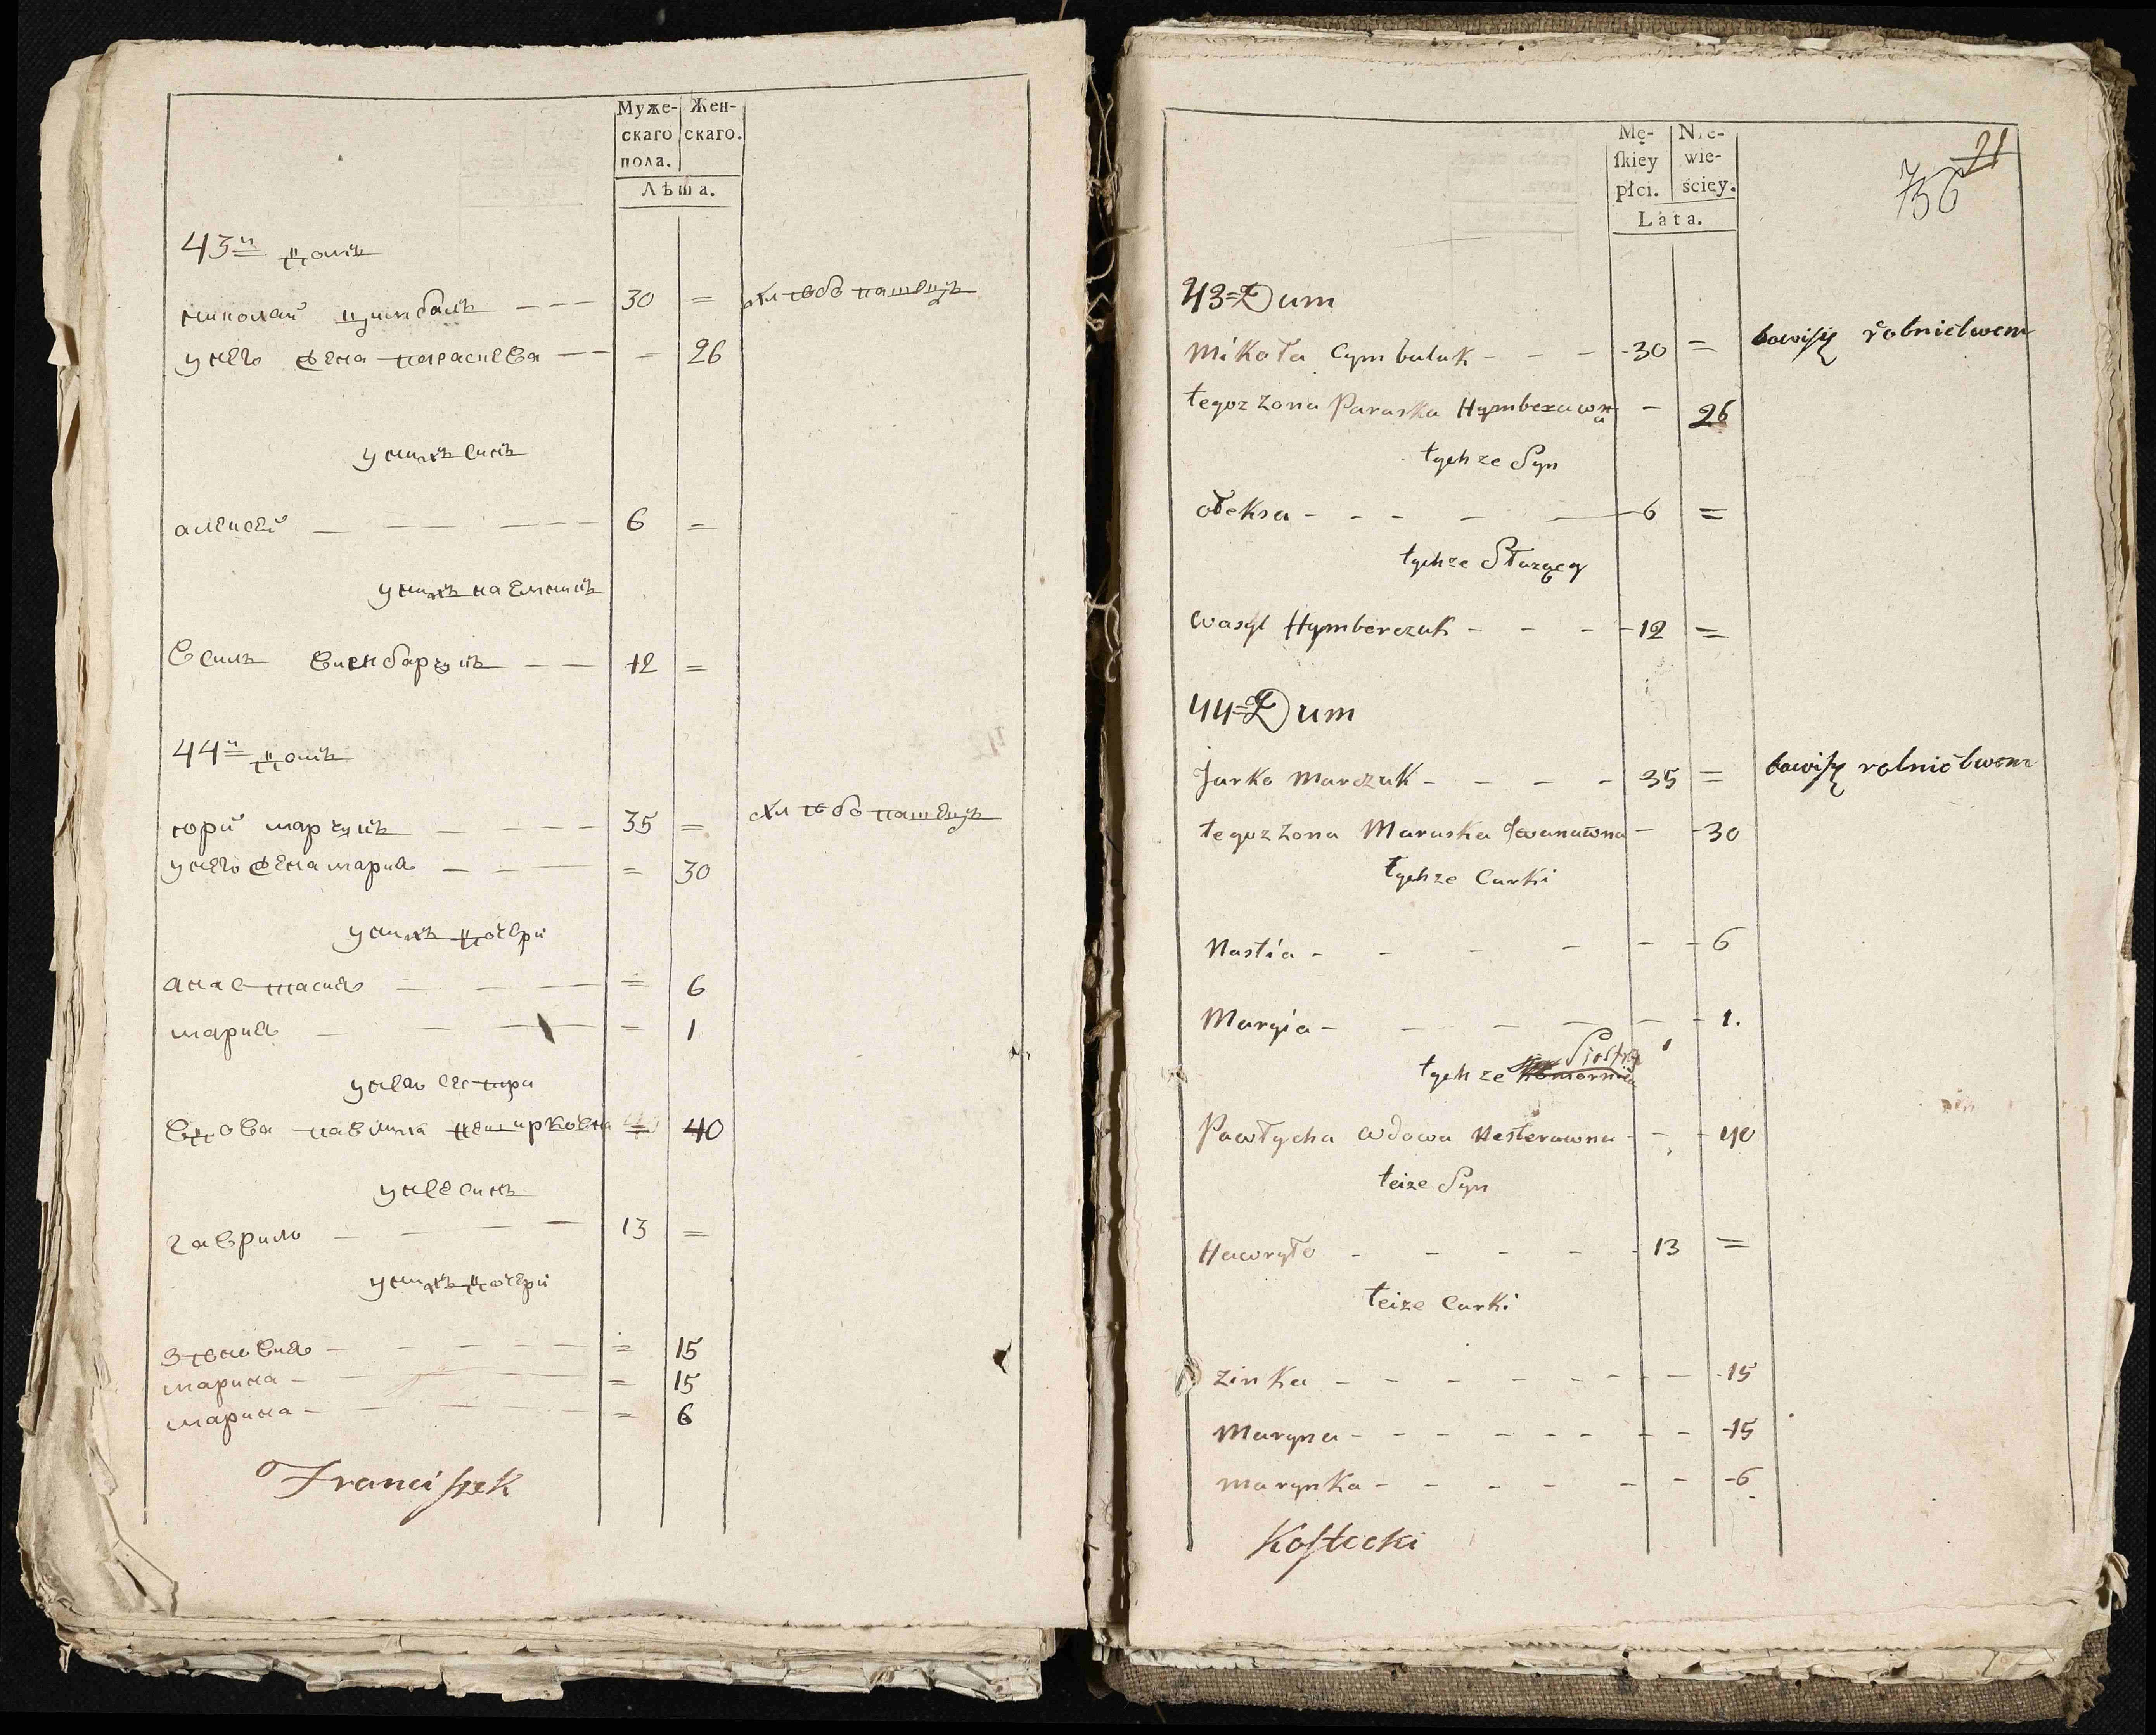 Муже-
скаго
пола.
Жен-
скаго.
Лѣта.
43й домъ
николай цимбалъ 30 = хлѣбо пашецъ
у него жена параскева – 26
у нихъ синъ
алексей 6 =
у нихъ наемникъ
Василь 12 =
44й домъ
юрий марчукъ 35 = хлѣбо пашецъ
у него жена мария = 30
у нихъ дочери
анастасия = 6
мария = 1
у него сестра
вдова = 40
у нее синъ
гаврило 13 =
у нихъ дочери
зѣновия = 15
марина = 15
марина = 6
Franciszek
Mę-
skiey
płci.
Nie-
wie-
ściey.
Lata.
21
756
43 = Dum
Mikoła Cymbaluk - - - 30 = bawi się rolnictwem
tegoz Zona Paraska Hymberuwna - 26
tychze Syn
ołeksa - - - - 6 =
tychze Słuzący
Wasyl Hymberczuk - - - 12 =
44 = Dum
Jurko Marczuk - - - - 35 = bawi się rolnictwem
tegoz Zona Maruska Iwanuwna - - 30
tychze Curki
Nastia - - - - - - 6
Maryia - - - - - - 1.
tychze Siostra
Pawłycha wdowa Nesteruwna - - - 40
teize Syn
Hawryło - - - - - 13 =
teize Curki
Zinka - - - - - - - - 15
Maryna - - - - - - - - 15
marynka - - - - - - - 6
Kostecki